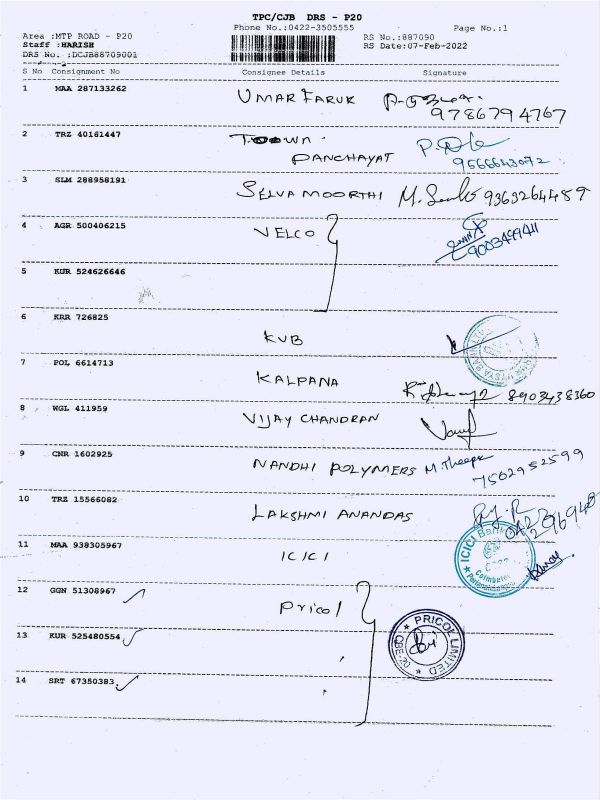 TPC/CJB DRS - P20
Phone No.:0422-3505555
Page No.:1
Area :MTP ROAD - P20
RS No.:887090
Staff :HARISH
RS Date:07-Feb-2022
DRS No. :DCJB88709001
S No Consignment No Consignee Details Signature
1 MAA 287133262 UMAR FARUK
9786794767
2 TRZ 40161447 Town
PANCHAYAT
9566643072
3 SLM 288958191 SELVA MOORTHI 9363264489
4 AGR 500406215 VELCO
5 KUR 524626646
6 KRR 726825
KVB
7 POL 6614713
KALPANA 8903438360
8 WGL 411959 VIJAY CHANDRAN
9 CNR 1602925
NANDHI POLYMERS M. Theepa
7502952599
10 TRZ 15566082
LAKSHMI ANANDAS
11 MAA 938305967 ICICI
ICICI Bank
Coimbatore
12 GGN 51308967 Pricol
13 KUR 525480554
PRICOL LIMITED
CBE-20
14 SRT 67350383